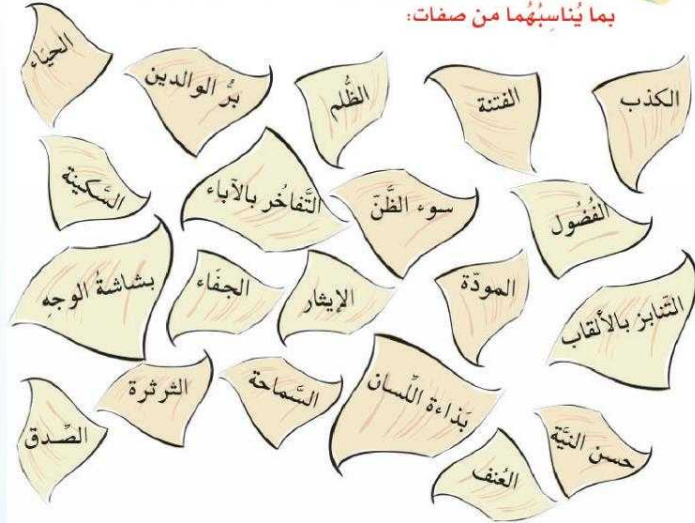 بما يُناسِبُهُما من صفات:
الكذب
الفتنة
الظُّلم
بَرُّ الوالدين
الحيَاء
الفُضُول
سوء الظَّنّ
التَّفاخُر بالآباء
السَّكينة
التَّنابز بالألقاب
المودّة
الإيثار
الجفَاء
بشاشةُ الوجهِ
بَذاءة اللِّسان
السَّماحة
الثرثرة
الصِّدق
حسن النيَّة
العُنف